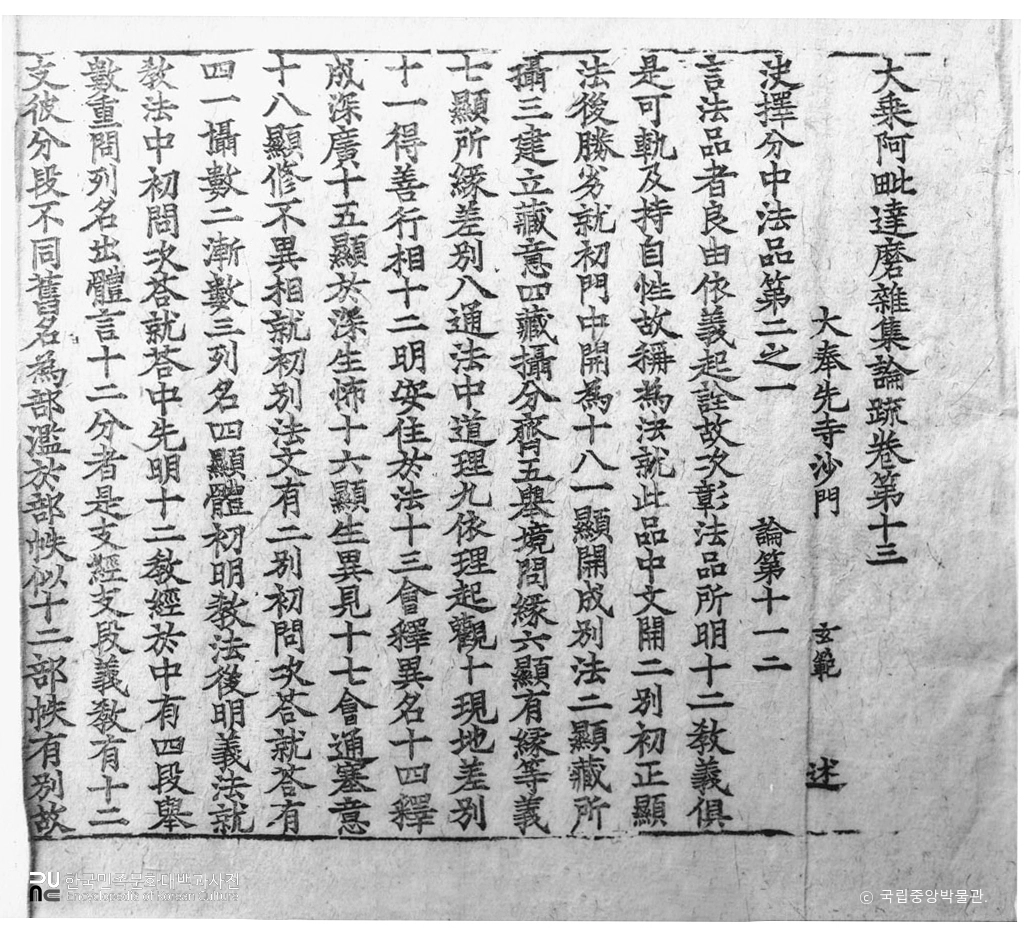 大乘阿毗達磨雜集論䟽卷第十三
大奉先寺沙門 玄範 述
决擇分中法品第二之一 論第十一二
言法品者良由依義起詮故次彰法品所明十二教義俱
是可軌及持自性故稱為法就此品中文開二別初正顯
法後勝劣就初門中開為十八一顯開成別法二顯藏所
攝三建立藏意四藏攝分齊五舉境問緣六顯有緣等義
七顯所緣差別八通法中道理九依理起觀十現地差別
十一得善行相十二明安住於法十三會釋異名十四釋
成深廣十五顯於深生怖十六顯生異見十七會通塞意
十八顯修不異相就初別法文有二別初問次荅就荅有
四一攝數二漸數三列名四顯體初明教法後明義法就
教法中初問次荅就荅中先明十二教經於中有四段舉
數重問列名出體言十二分者是支經支段義教有十二
支彼分段不同舊名為部濫於部帙似十二部帙有別故
PUNE 한국민족문화대백과사전
Encyclopedia of Korean Culture
© 국립중앙박물관.